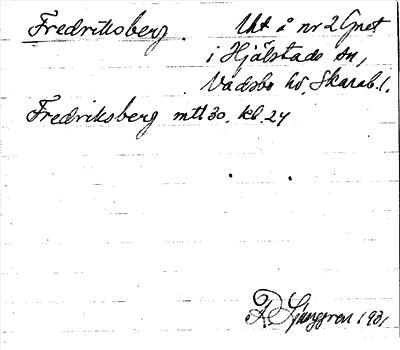 Fredriksberg. Utt å nr 2 Gnet
i Hjälstads sn,
Vadsbo hd, Skarab. l.
Fredriksberg mtl 30. kl. 24
R Ljunggren 1931